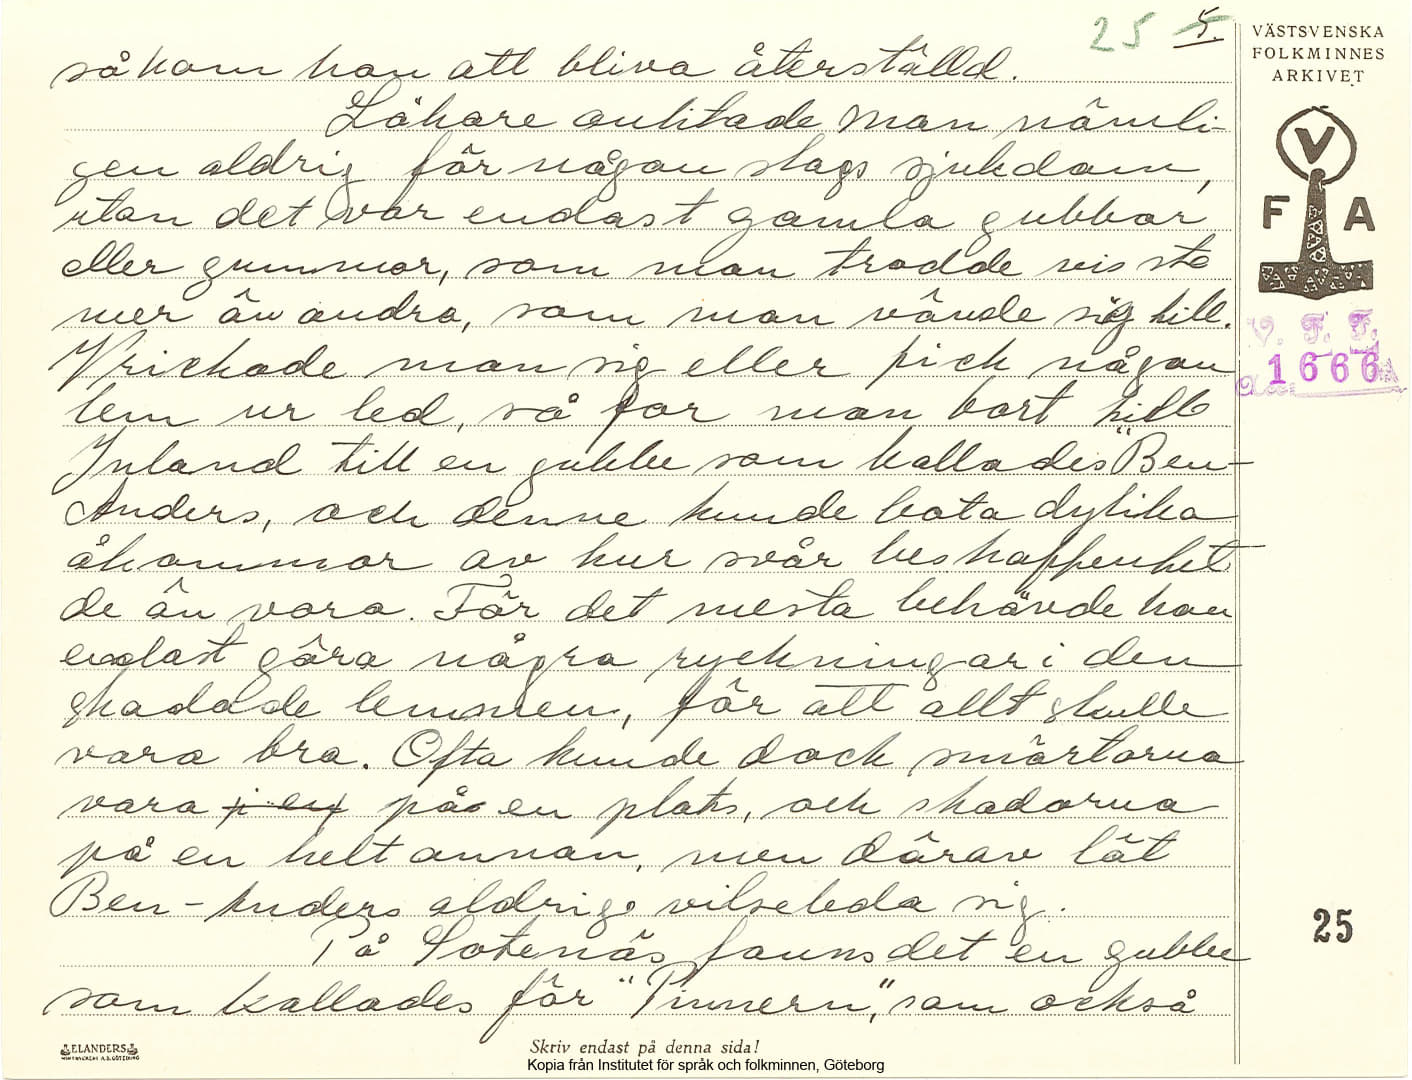 25 5.
VÄSTSVENSKA
FOLKMINNES
ARKIVET
V
F A
V. F. F.
1666
så kom han att bliva återställd.
Läkare anlitade man nämli-
gen aldrig för någon slags sjukdom,
utan det var endast gamla gubbar
eller gummor, som man trodde visste
mer än andra, som man vände sig till.
Vrickade man sig eller fick någon
lem ur led, så for man bort till
Inland till en gubbe som kallades "Ben-
Anders, och denne kunde bota dylika
åkommor av hur svår beskaffenhet
de än voro. För det mesta behövde han
endast göra några ryckningar i den
skadade lemmen, för att allt skulle
vara bra. Ofta kunde dock smärtorna
vara i en på en plats, och skadorna
på en helt annan, men därav lät
Ben-Anders aldrig vilseleda sig.
På Sotenäs fanns det en gubbe
som kallades för "Pinnern", som också
25
ELANDERS
Skriv endast på denna sida!
Kopia från Institutet för språk och folkminnen, Göteborg